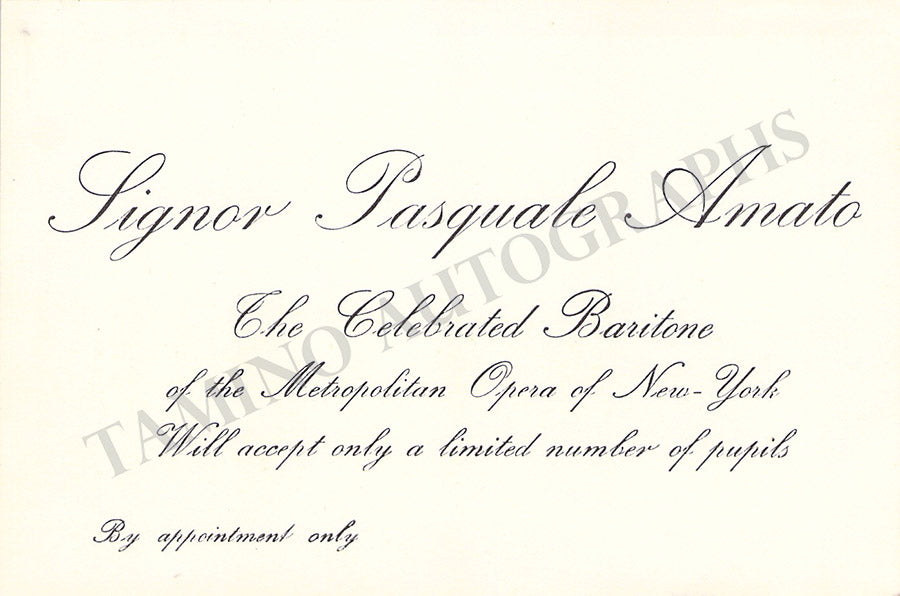 Signor Pasquale Amato
The Celebrated Baritone
of the Metropolitan Opera of New-York
Will accept only a limited number of pupils
By appointment only
TAMINO AUTOGRAPHS